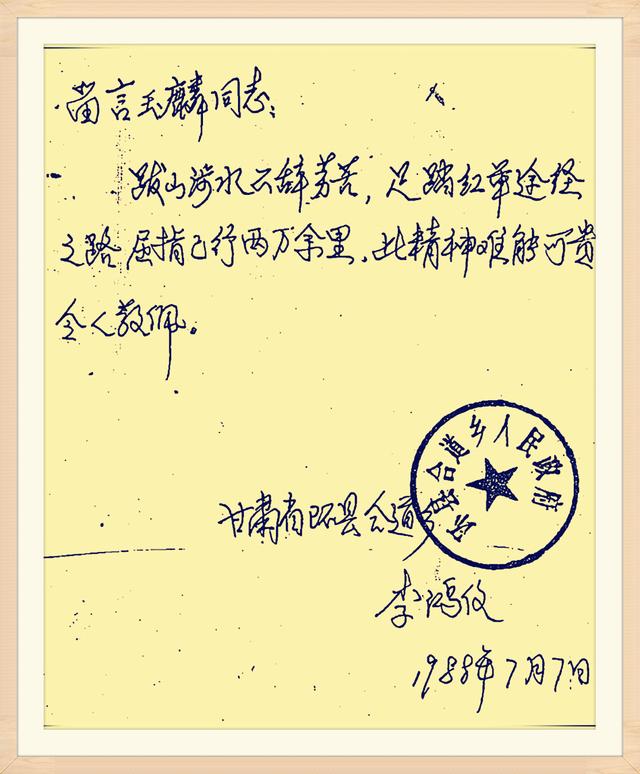 留言玉麟同志：
跋山涉水不辞劳苦，足踏红军途经
之路屈指已行两万余里．此精神难能可贵
令人敬佩。
环县合道乡人民政府
甘肃省环县合道乡
李鸿
1988年7月7日